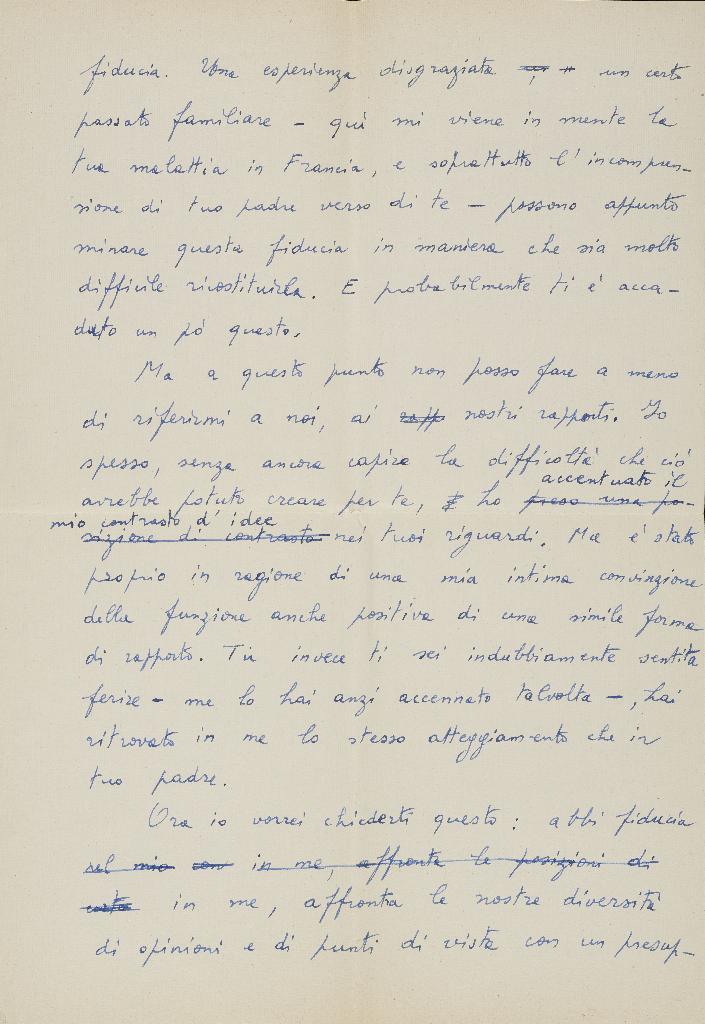 fiducia. Una esperienza disgraziata un certo
passato familiare – qui mi viene in mente la
tua malattia in Francia, e soprattutto l'incompren-
sione di tuo padre verso di te – possono appunto
minare questa fiducia in maniera che sia molto
difficile ricostituirla. E probabilmente ti è acca-
duto un pò questo.
Ma a questo punto non posso fare a meno
di riferirmi a noi, ai rapp nostri rapporti. Io
spesso, senza ancora capire la difficoltà che ciò
accentuato il
avrebbe potuto creare per te, ho preso una po-
mio contrasto d'idee
sizione di contrasto nei tuoi riguardi. Ma è stato
proprio in ragione di una mia intima convinzione
della funzione anche positiva di una simile forma
di rapporto. Tu invece ti sei indubbiamente sentita
ferire – me lo hai anzi accennato talvolta –, hai
ritrovato in me lo stesso atteggiamento che in
tuo padre.
Ora io vorrei chiederti questo: abbi fiducia
nel mio con in me, affronta le posizioni di
in me, affronta le nostre diversità
di opinioni e di punti di vista con un presup-